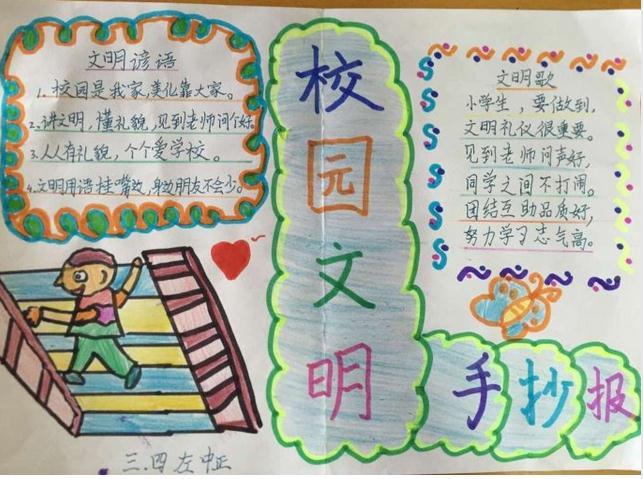 文明谚语
1、校园是我家,美化靠大家。
2、讲文明,懂礼貌,见到老师问个好
3、人人有礼貌,个个爱学校。
4、文明用语挂嘴边,身边朋友不会少。
校
园
文
明
手抄报
文明歌
小学生,要做到,
文明礼仪很重要。
见到老师问声好,
同学之间不打闹。
团结互助品质好,
努力学习志气高。
三.四 左中正